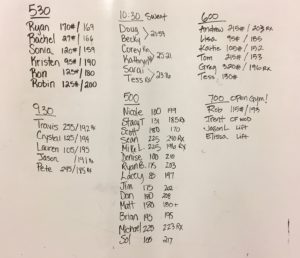 530
Ryan 170# / 169
Rachel 27# / 166
Sonia 120# / 159
Kristen 95# / 190
Ron 125# / 180
Robin 125# / 200
930
Travis 255/192
Crystal 125/198
Lauren 105/195
Jason /191
Pete 245/185
10:30 Sweat
Doug
Becky 21:59
Corey
Kathryn 25:21
Sara
Tess
500
Nicole 180 199
Stacy T 131 185 Rx
Scott 180 170
Sean 225 210 Rx
Mike L. 225 196 Rx
Denise 180 210
Ryan B. 175 203
Lacey 80 197
Jim 175 202
Dan 180 208
Matt 180 180+
Brian 195 195
Michael 225 223 Rx
Sol 165 217
600
Andrew 215# / 203 Rx
Lisa 95# / 185
Katie 105# / 152
Tom 215# / 153
Greg 220# / 196 Rx
Tess 130#
700 Open Gym!
Rob 115# / 195
Trent OF WOD
Jason L. Lift
Elissa Lift